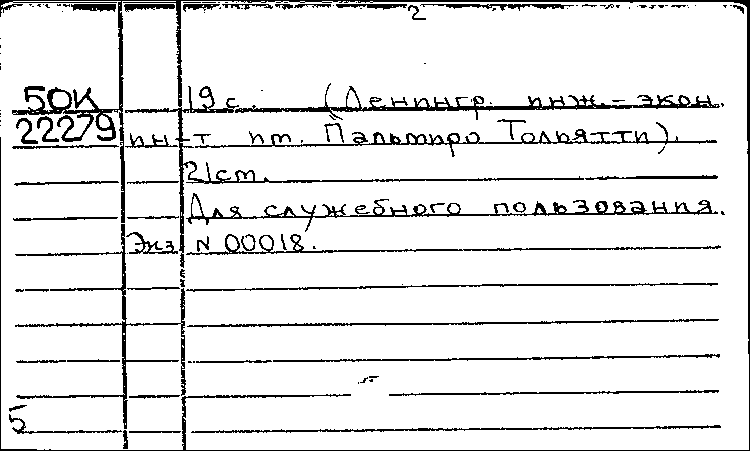 2
50К 19 с. (Ленингр. инж.-экон.
22279 ин-т им. Пальмиро Тольятти).
21 см.
Для служебного пользования.
Экз. N 00018.
5